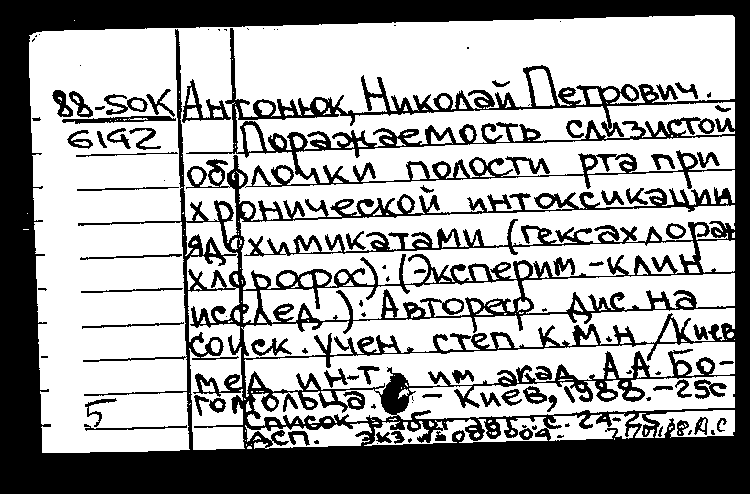 88-SOK Антонюк, Николай Петрович.
6142 Поражаемость слизистой
оболочки полости рта при
хронической интоксикации
ядохимикатами (гексахлоран
хлорофос): (Эксперим.-клин.
исслед.): Автореф. дис. на
соиск. учен. степ. к.м.н. / Киев
мед. ин-т им. акад. А.А. Бо-
5 гомольца. - Киев, 1988. - 25с
Список работ авт.: с. 24-25
ДСП. Экз.